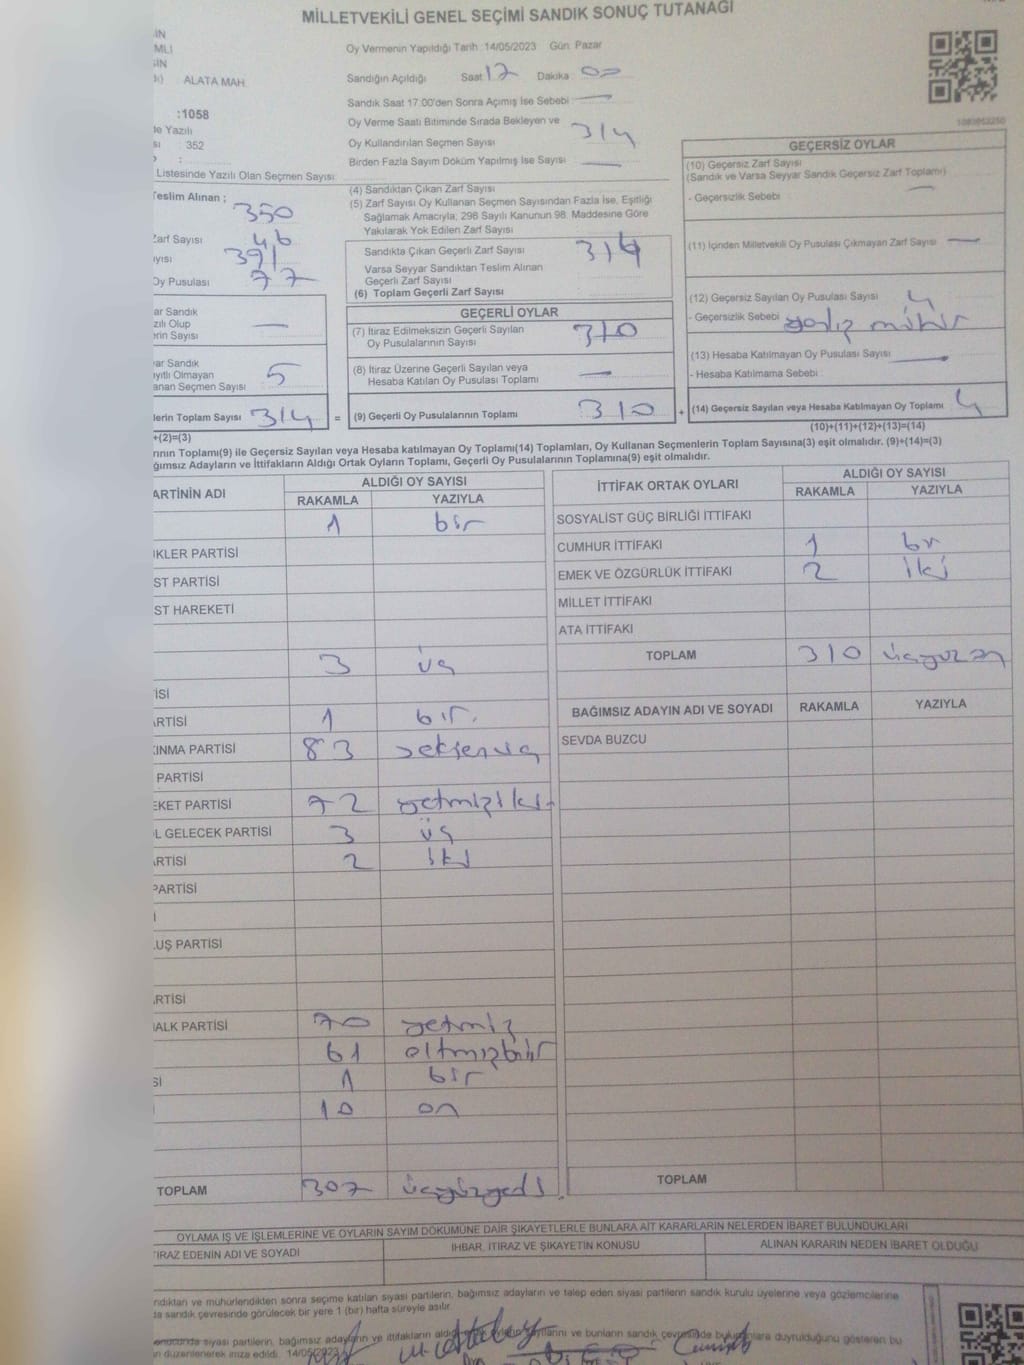 MİLLETVEKİLİ GENEL SEÇİMİ SANDIK SONUÇ TUTANAĞI
Oy Vermenin Yapıldığı Tarih 14/05/2023 Gün: Pazar
ALATA MAH.
Sandığın Açıldığı Saat 17 Dakika 00
Sandık Saat 17:00'den Sonra Açımış İse Sebebi
:1058
352
Oy Verme Saati Bitiminde Sırada Bekleyen ve
Oy Kullandırılan Seçmen Sayısı 314
Birden Fazla Sayım Döküm Yapılmış İse Sayısı
Listesinde Yazılı Olan Seçmen Sayısı
Teslim Alınan ; 350
Zarf Sayısı 46
391
Oy Pusulası 77
(4) Sandıktan Çıkan Zarf Sayısı
(5) Zarf Sayısı Oy Kullanan Seçmen Sayısından Fazla İse, Eşitliği
Sağlamak Amacıyla; 298 Sayılı Kanunun 98. Maddesine Göre
Yakılarak Yok Edilen Zarf Sayısı
Sandıkta Çıkan Geçerli Zarf Sayısı 314
Varsa Seyyar Sandıktan Teslim Alınan
Geçerli Zarf Sayısı
(6) Toplam Geçerli Zarf Sayısı
GEÇERLİ OYLAR
(7) İtiraz Edilmeksizin Geçerli Sayılan
Oy Pusulalarının Sayısı 310
(8) İtiraz Üzerine Geçerli Sayılan veya
Hesaba Katılan Oy Pusulası Toplamı
5
lerin Toplam Sayısı 314 = (9) Geçerli Oy Pusulalarının Toplamı 310 +
+(2)=(3)
GEÇERSİZ OYLAR
(10) Geçersiz Zarf Sayısı
(Sandık ve Varsa Seyyar Sandık Geçersiz Zarf Toplamı)
- Geçersizlik Sebebi
(11) İçinden Milletvekili Oy Pusulası Çıkmayan Zarf Sayısı
(12) Geçersiz Sayılan Oy Pusulası Sayısı 4
- Geçersizlik Sebebi
(13) Hesaba Katılmayan Oy Pusulası Sayısı
- Hesaba Katılmama Sebebi
(14) Geçersiz Sayılan veya Hesaba Katılmayan Oy Toplamı 4
(10)+(11)+(12)+(13)=(14)
Toplamı(9) ile Geçersiz Sayılan veya Hesaba katılmayan Oy Toplamı(14) Toplamları, Oy Kullanan Seçmenlerin Toplam Sayısına(3) eşit olmalıdır. (9)+(14)=(3)
Adayların ve İttifakların Aldığı Ortak Oyların Toplamı, Geçerli Oy Pusulalarının Toplamına(9) eşit olmalıdır.
ARTİNİN ADI ALDIĞI OY SAYISI
RAKAMLA YAZIYLA
1 bir
İKLER PARTİSİ
ST PARTİSİ
ST HAREKETİ
3 üç
İSİ
ARTİSİ 1 bir.
KINMA PARTİSİ 83 seksenüç
PARTİSİ
EKET PARTİSİ 72 yetmişiki
L GELECEK PARTİSİ 3 üç
ARTİSİ 2 iki
PARTİSİ
UŞ PARTİSİ
ARTİSİ
ALK PARTİSİ 70 yetmiş
61 altmışbir
Sİ 1 bir
10 on
TOPLAM 307 üçyüzyedi
İTTİFAK ORTAK OYLARI ALDIĞI OY SAYISI
RAKAMLA YAZIYLA
SOSYALİST GÜÇ BİRLİĞİ İTTİFAKI
CUMHUR İTTİFAKI 1 bir
EMEK VE ÖZGÜRLÜK İTTİFAKI 2 iki
MİLLET İTTİFAKI
ATA İTTİFAKI
TOPLAM 310 üçyüzon
BAĞIMSIZ ADAYIN ADI VE SOYADI RAKAMLA YAZIYLA
SEVDA BUZCU
TOPLAM
OYLAMA İŞ VE İŞLEMLERİNE VE OYLARIN SAYIM DÖKÜMÜNE DAİR ŞİKAYETLERLE BUNLARA AİT KARARLARIN NELERDEN İBARET BULUNDUKLARI
İTİRAZ EDENİN ADI VE SOYADI İHBAR, İTİRAZ VE ŞİKAYETİN KONUSU ALINAN KARARIN NEDEN İBARET OLDUĞU
ve mühürlendikten sonra seçime katılan siyasi partilerin, bağımsız adayların ve talep eden siyasi partilerin sandık kurulu üyelerine veya gözlemcilerine
sandık çevresinde görülecek bir yere 1 (bir) hafta süreyle asılır.
siyasi partilerin, bağımsız adayların ve ittifakların aldığı ve bunların sandık çevresinde duyrulduğunu gösteren bu
düzenlenerek imza edildi. 14/05/2023